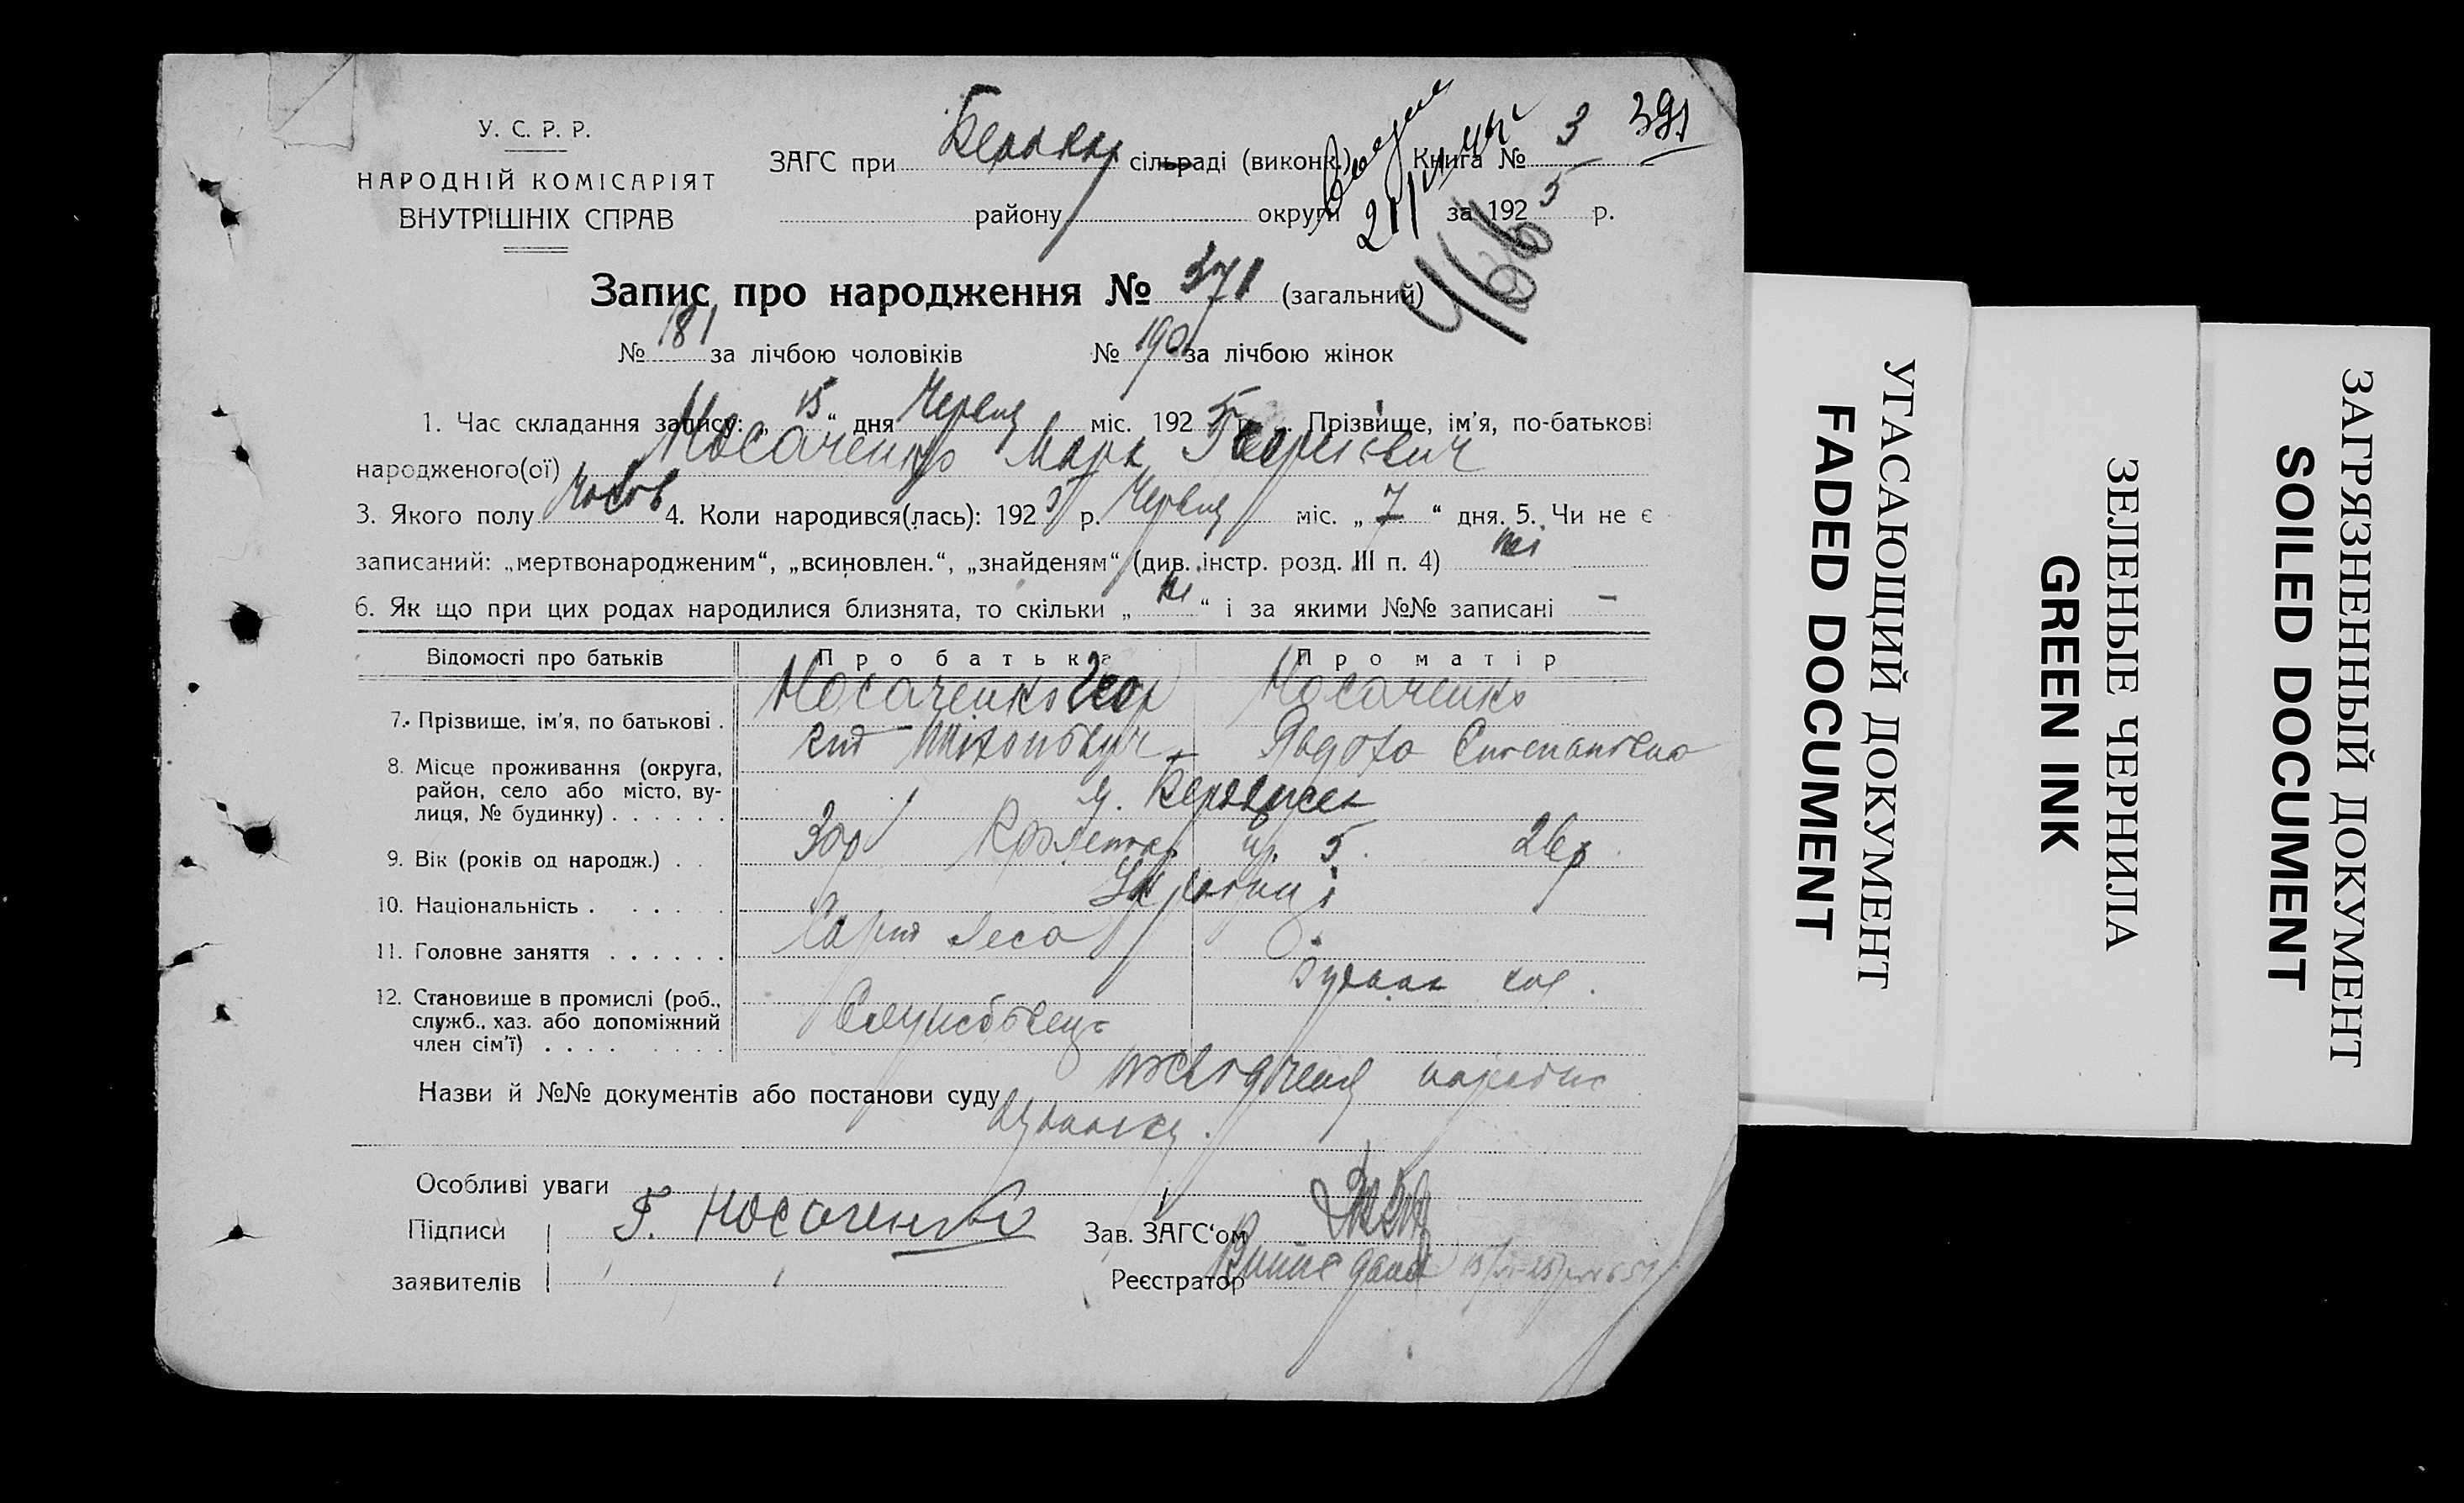 У. С. Р. Р.
НАРОДНІЙ КОМІСАРІЯТ
ВНУТРІШНІХ СПРАВ
ЗАГС при сільраді (виконк.) Книга № 3 391
району округи за 1925 р.
Запис про народження № 371 (загальний)
№ 181 за лічбою чоловіків № 190 за лічбою жінок
1. Час складання запису: „ 15 “ дня Червця міс. 1925 р. Прізвище, ім'я, по-батькові
народженого(ої) Носаченко Марк Георгієвич
3. Якого полу чолов 4. Коли народився(лась): 1925 р. Червця міс. „ 7 “ дня. 5. Чи не є
записаний: „мертвонародженим“, „всиновлен.“, „знайденям“ (див. інстр. розд. III п. 4) ні
6. Як що при цих родах народилися близнята, то скільки „ ні “ і за якими №№ записані –
Відомості про батьків Про батька Про матір
7. Прізвище, ім'я, по батькові . Носаченко Геор Носаченко
гий Тихонович Явдоха Степановна
8. Місце проживання (округа,
район, село або місто, ву-
лиця, № будинку) . . . . . .
м. Бердичев
9. Вік (років од народж.) . . 30р 5. 26р.
10. Національність . . . . . Українці
11. Головне заняття . . . . . .
12. Становище в промислі (роб.,
служб., хаз. або допоміжний
член сім'ї) . . . . . . . .
Службовець
Назви й №№ документів або постанови суду
Особливі уваги
Підписи Г. Носаченко Зав. ЗАГС‘ом
заявителів Реєстратор
УГАСАЮЩИЙ ДОКУМЕНТ
FADED DOCUMENT
ЗЕЛЕНЫЕ ЧЕРНИЛА
GREEN INK
ЗАГРЯЗНЕННЫЙ ДОКУМЕНТ
SOILED DOCUMENT